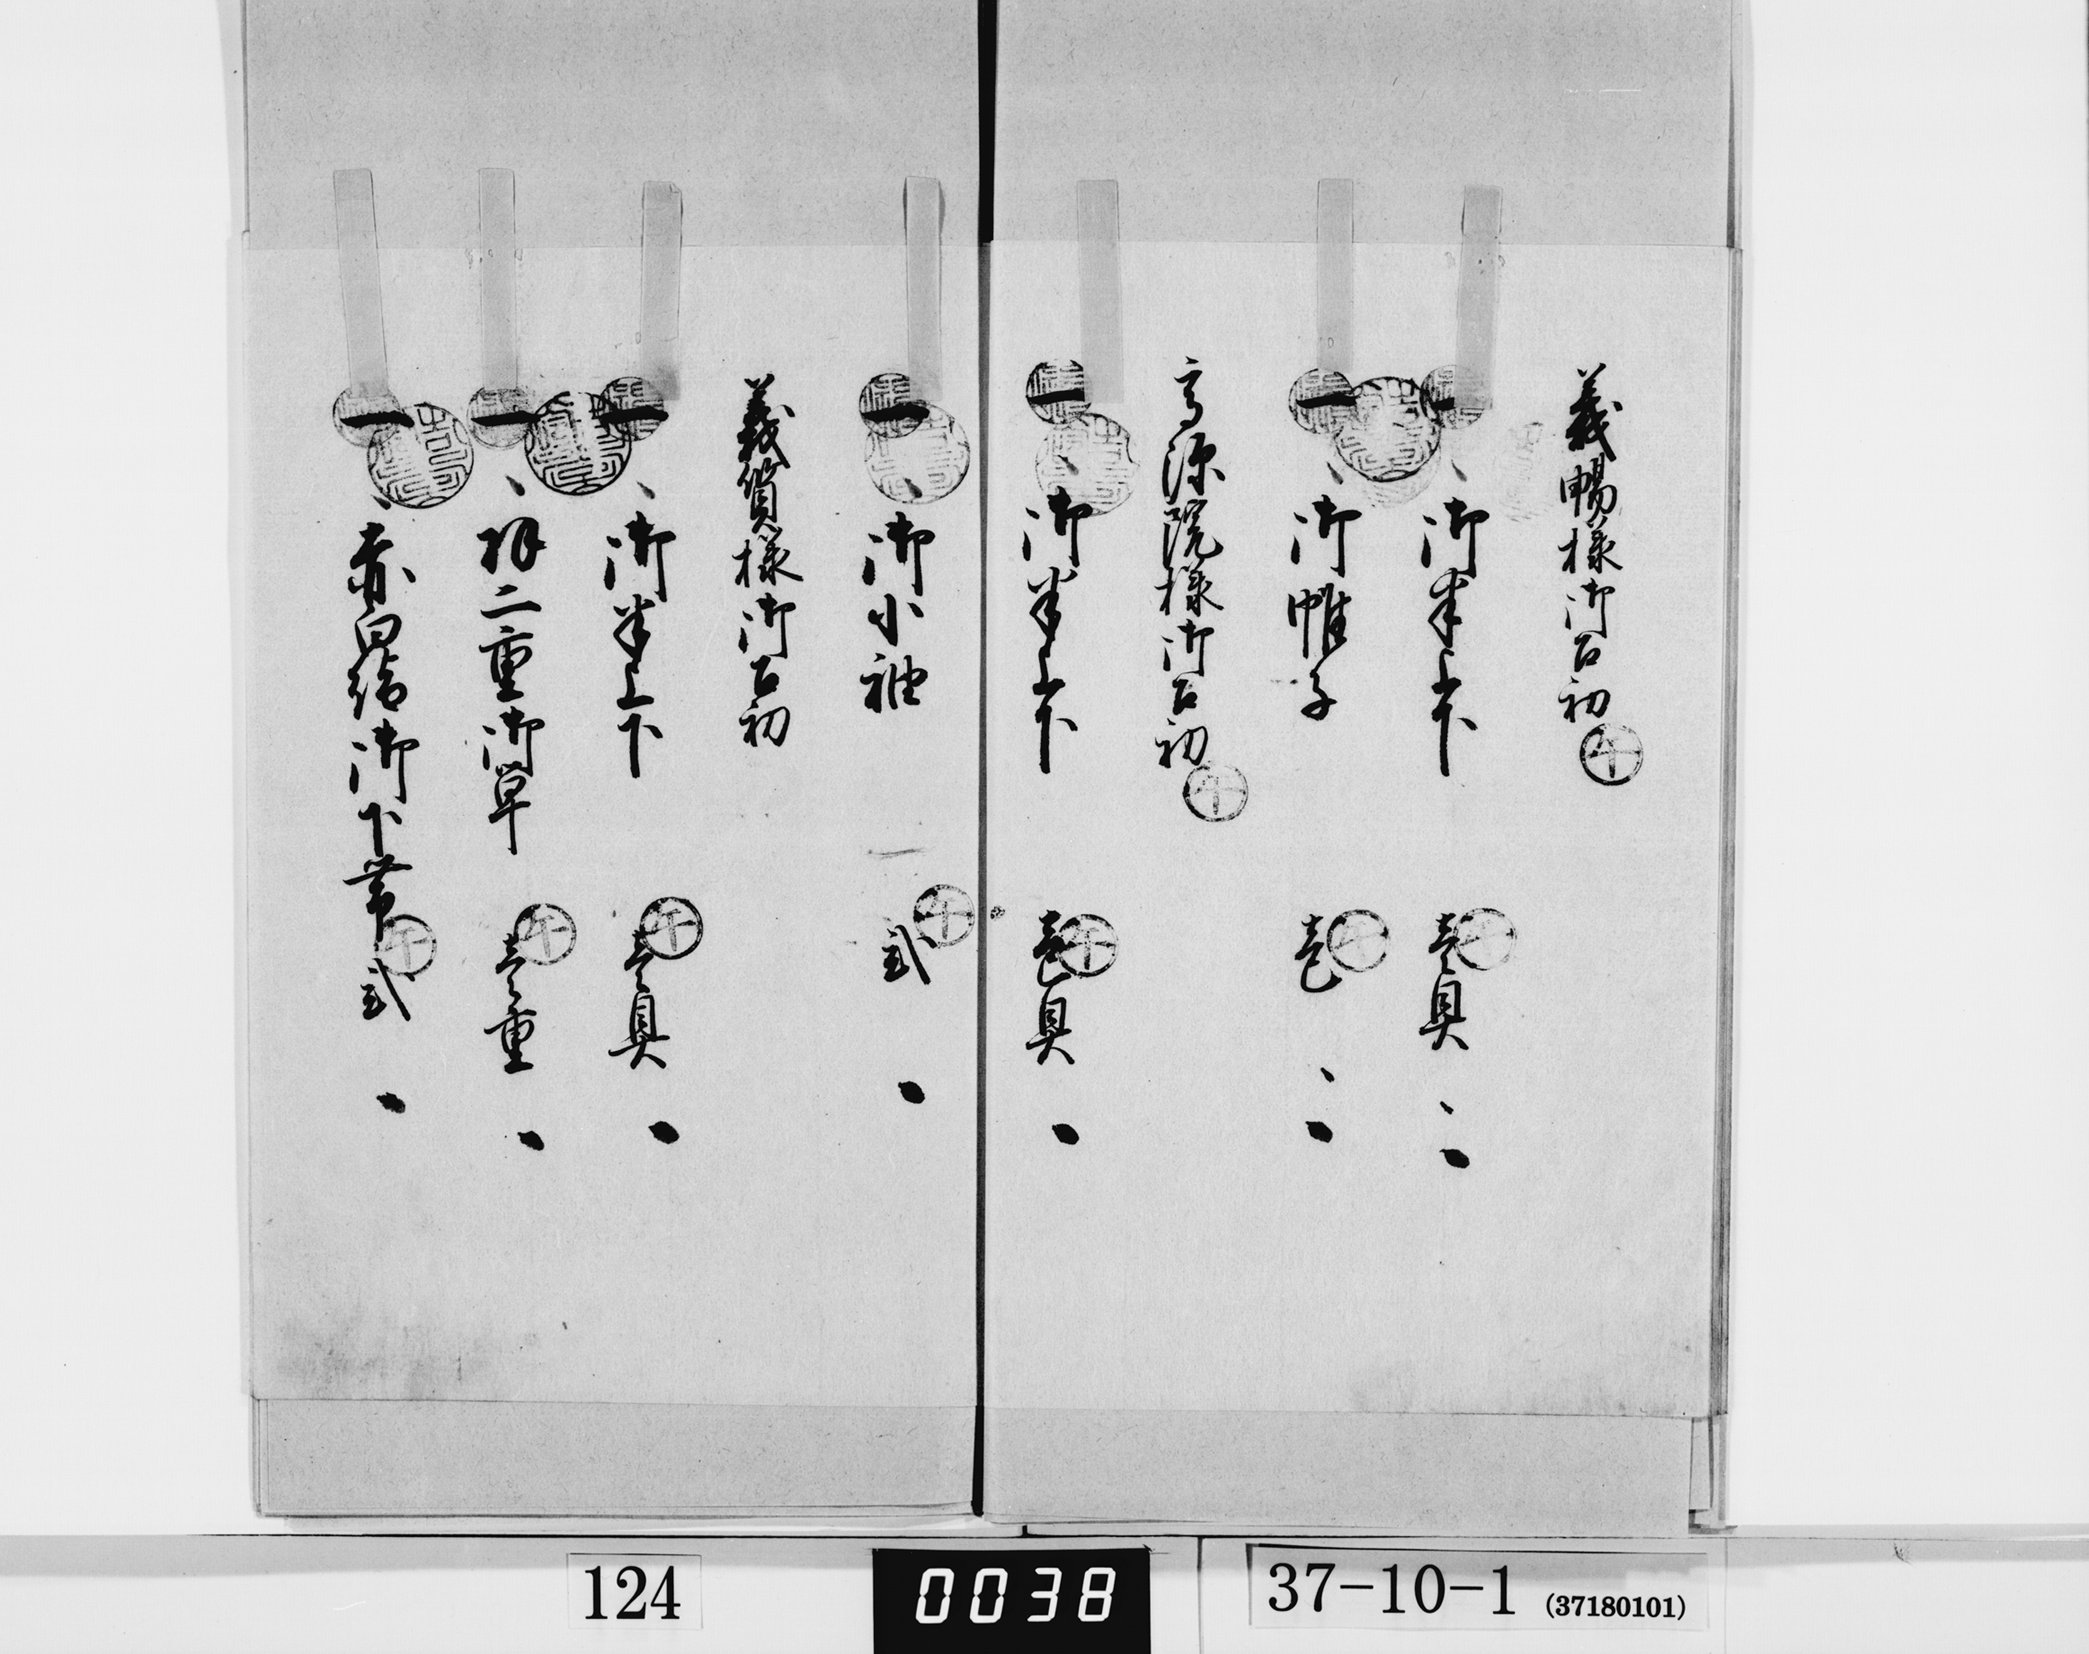 義暢様御召初
一、御半上下 壱具
一、御帷子 壱
高源院様御召初
一、御半上下 壱具
一、御小袖 弐
義質様御召初
一、御半上下 壱具
一、羽二重御単 壱重
一、赤白結御下帯 弐
124
0038
37-10-1 (37180101)